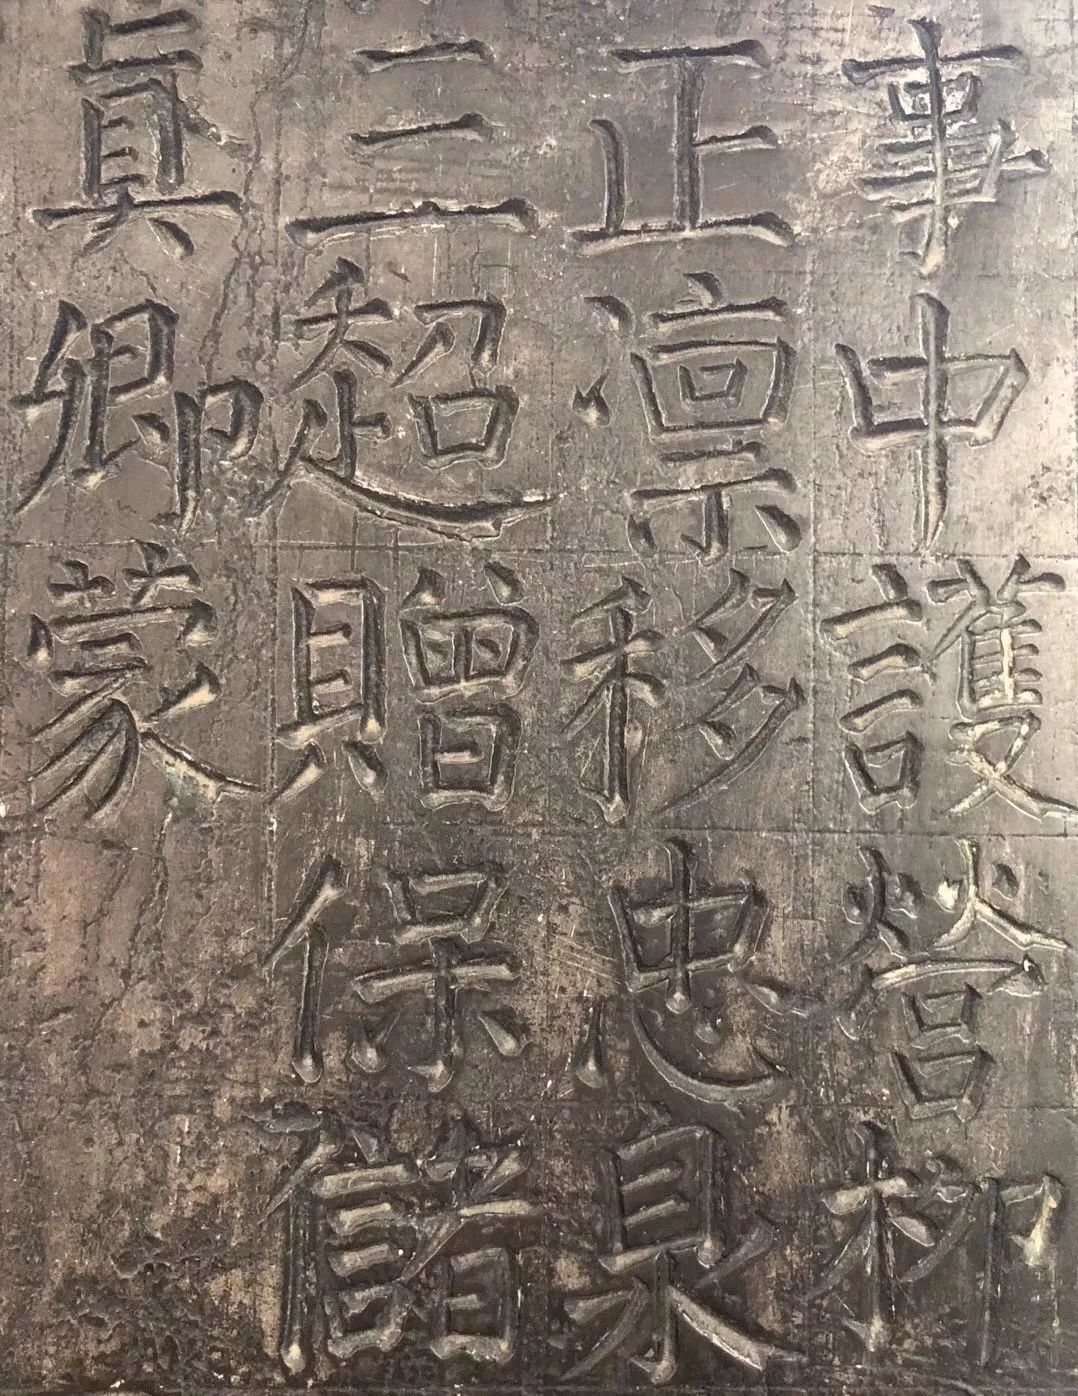 事中護營柳
正凛移忠泉
三超贈保儲
真卿蒙